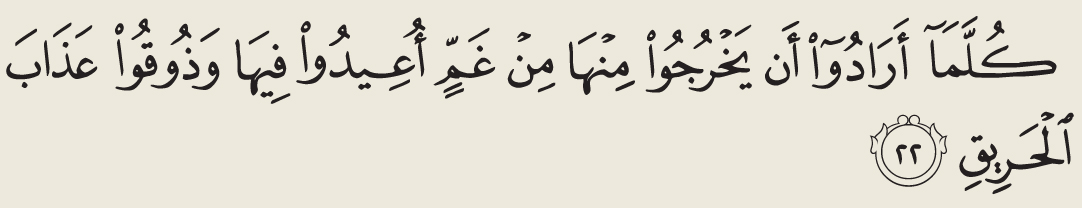 كُلَّمَآ أَرَادُوٓاْ أَن يَخۡرُجُواْ مِنۡهَا مِنۡ غَمٍّ أُعِيدُواْ فِيهَا وَذُوقُواْ عَذَابَ
ٱلۡحَرِيقِ ٢٢